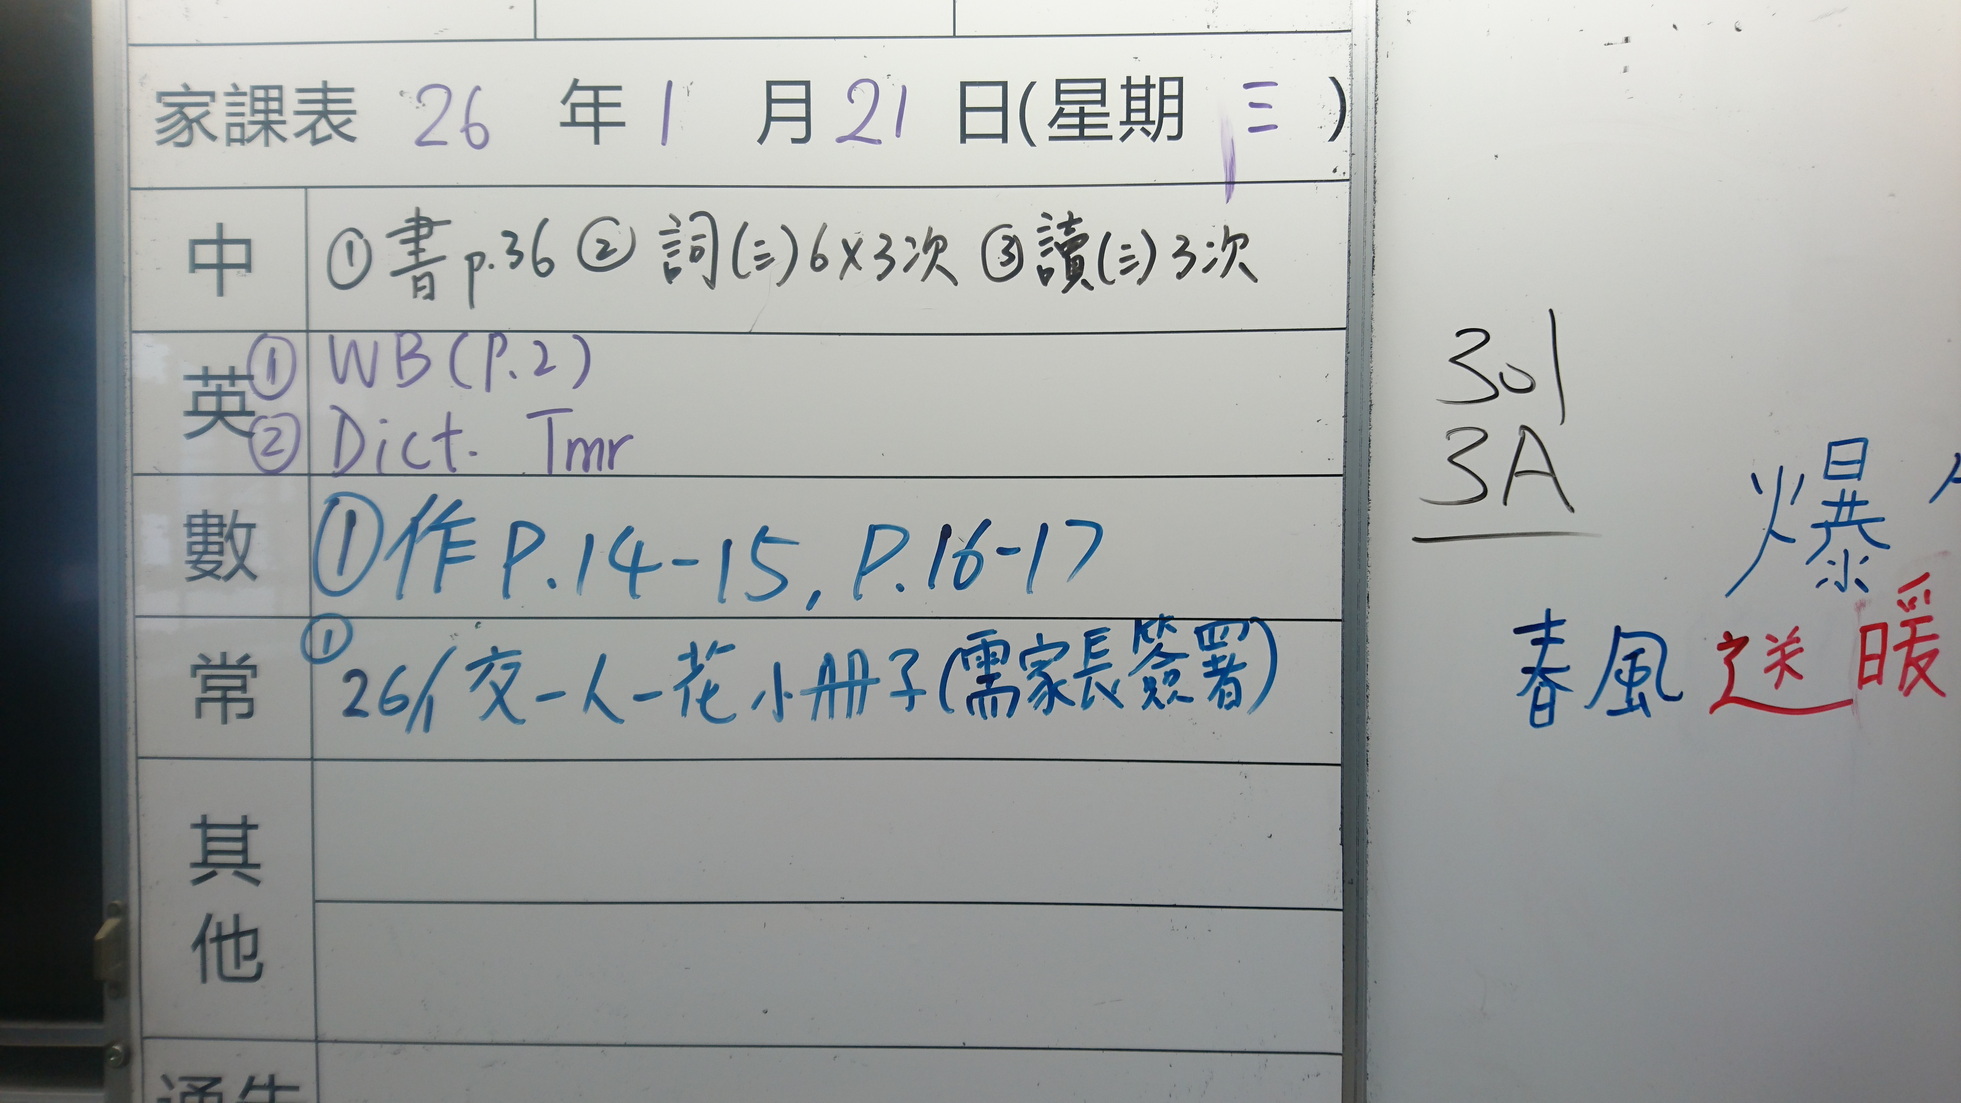 家課表 26 年 1 月 21 日(星期 三 )
中 ①書 p.36 ② 詞(三)6×3次 ③讀(三)3次
英 ① WB(P.2)
② Dict. Tmr
數 ①作 P.14-15, P.16-17
常 ① 26/1 交一人一花小冊子(需家長簽署)
其他
通告
301
3A
爆
春風送暖